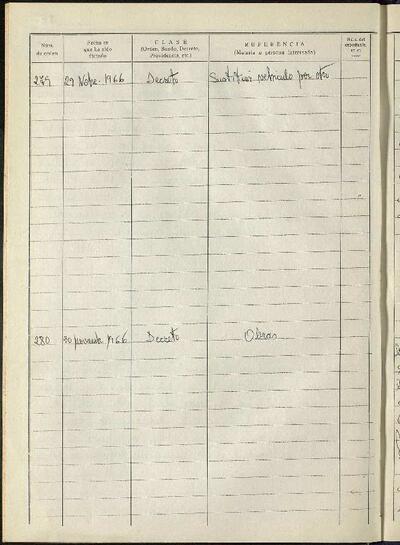 Núm. de orden
Fecha en que ha sido dictado
CLASE
(Orden, Bando, Decreto, Providencia, etc.)
REFERENCIA
(Materia o persona interesada)
279 29 Nbre. 1966 Decreto Sustituir vehículo por otro
280 30 noviembre 1966 Decreto Obras